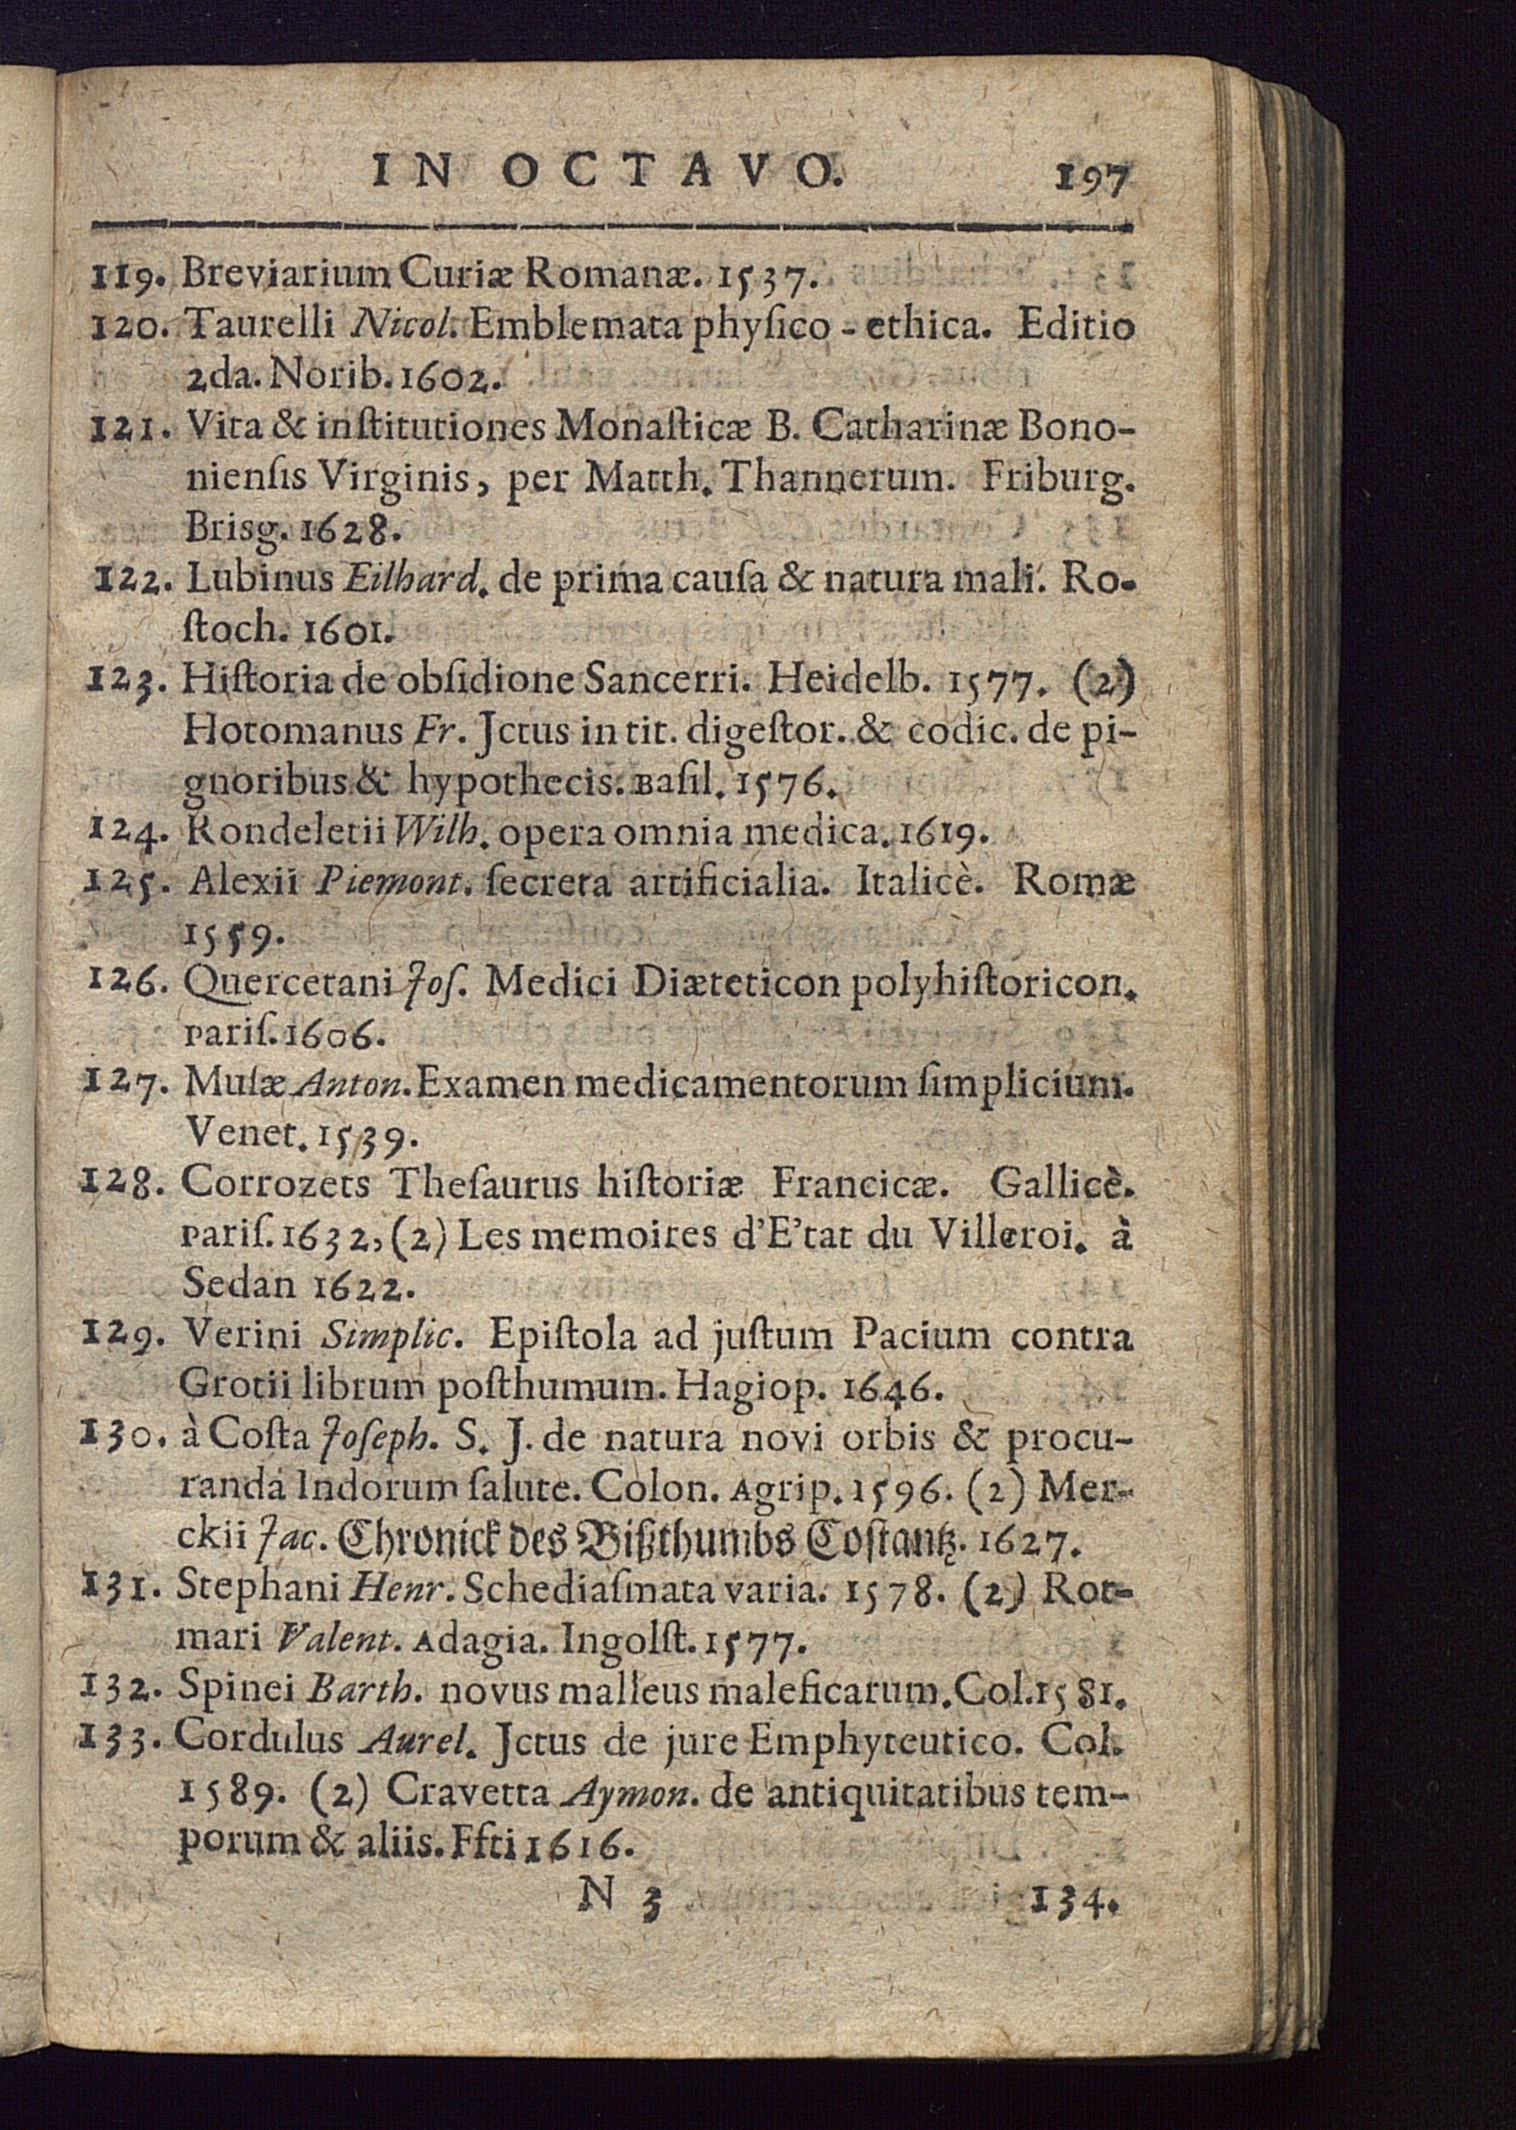 IN OCTAVO. 197
119. Breviarium Curiæ Romanæ. 1537.
120. Taurelli Nicol. Emblemata phyſico - ethica. Editio
2da. Norib. 1602.
121. Vita & inſtitutiones Monaſticæ B. Catharinæ Bono-
nienſis Virginis, per Matth. Thannerum. Friburg.
Brisg. 1628.
122. Lubinus Eilhard. de prima cauſa & natura mali. Ro-
ſtoch. 1601.
123. Hiſtoria de obſidione Sancerri. Heidelb. 1577. (2)
Hotomanus Fr. Jctus in tit. digeſtor. & codic. de pi-
gnoribus & hypothecis. Baſil. 1576.
124. Rondeletii Wilh. opera omnia medica. 1619.
125. Alexii Piemont. ſecreta artificialia. Italicè. Romæ
1559.
126. Quercetani Joſ. Medici Diæteticon polyhiſtoricon.
Pariſ. 1606.
127. Muſæ Anton. Examen medicamentorum ſimplicium.
Venet. 1539.
128. Corrozets Theſaurus hiſtoriæ Francicæ. Gallicè.
Pariſ. 1632, (2) Les memoires d'E'tat du Villeroi. à
Sedan 1622.
129. Verini Simplic. Epiſtola ad juſtum Pacium contra
Grotii librum poſthumum. Hagiop. 1646.
130. à Coſta Joſeph. S. J. de natura novi orbis & procu-
randá Indorum ſalute. Colon. Agrip. 1596. (2) Mer-
ckii Jac. Chronick des Bißthumbs Coſtantz. 1627.
131. Stephani Henr. Schediaſmata varia. 1578. (2) Rot-
mari Valent. Adagia. Ingolſt. 1577.
132. Spinei Barth. novus malleus maleficarum. Col. 1581.
133. Cordulus Aurel. Jctus de jure Emphyteutico. Col.
1589. (2) Cravetta Aymon. de antiquitatibus tem-
porum & aliis. Ffti 1616.
N 3 134.